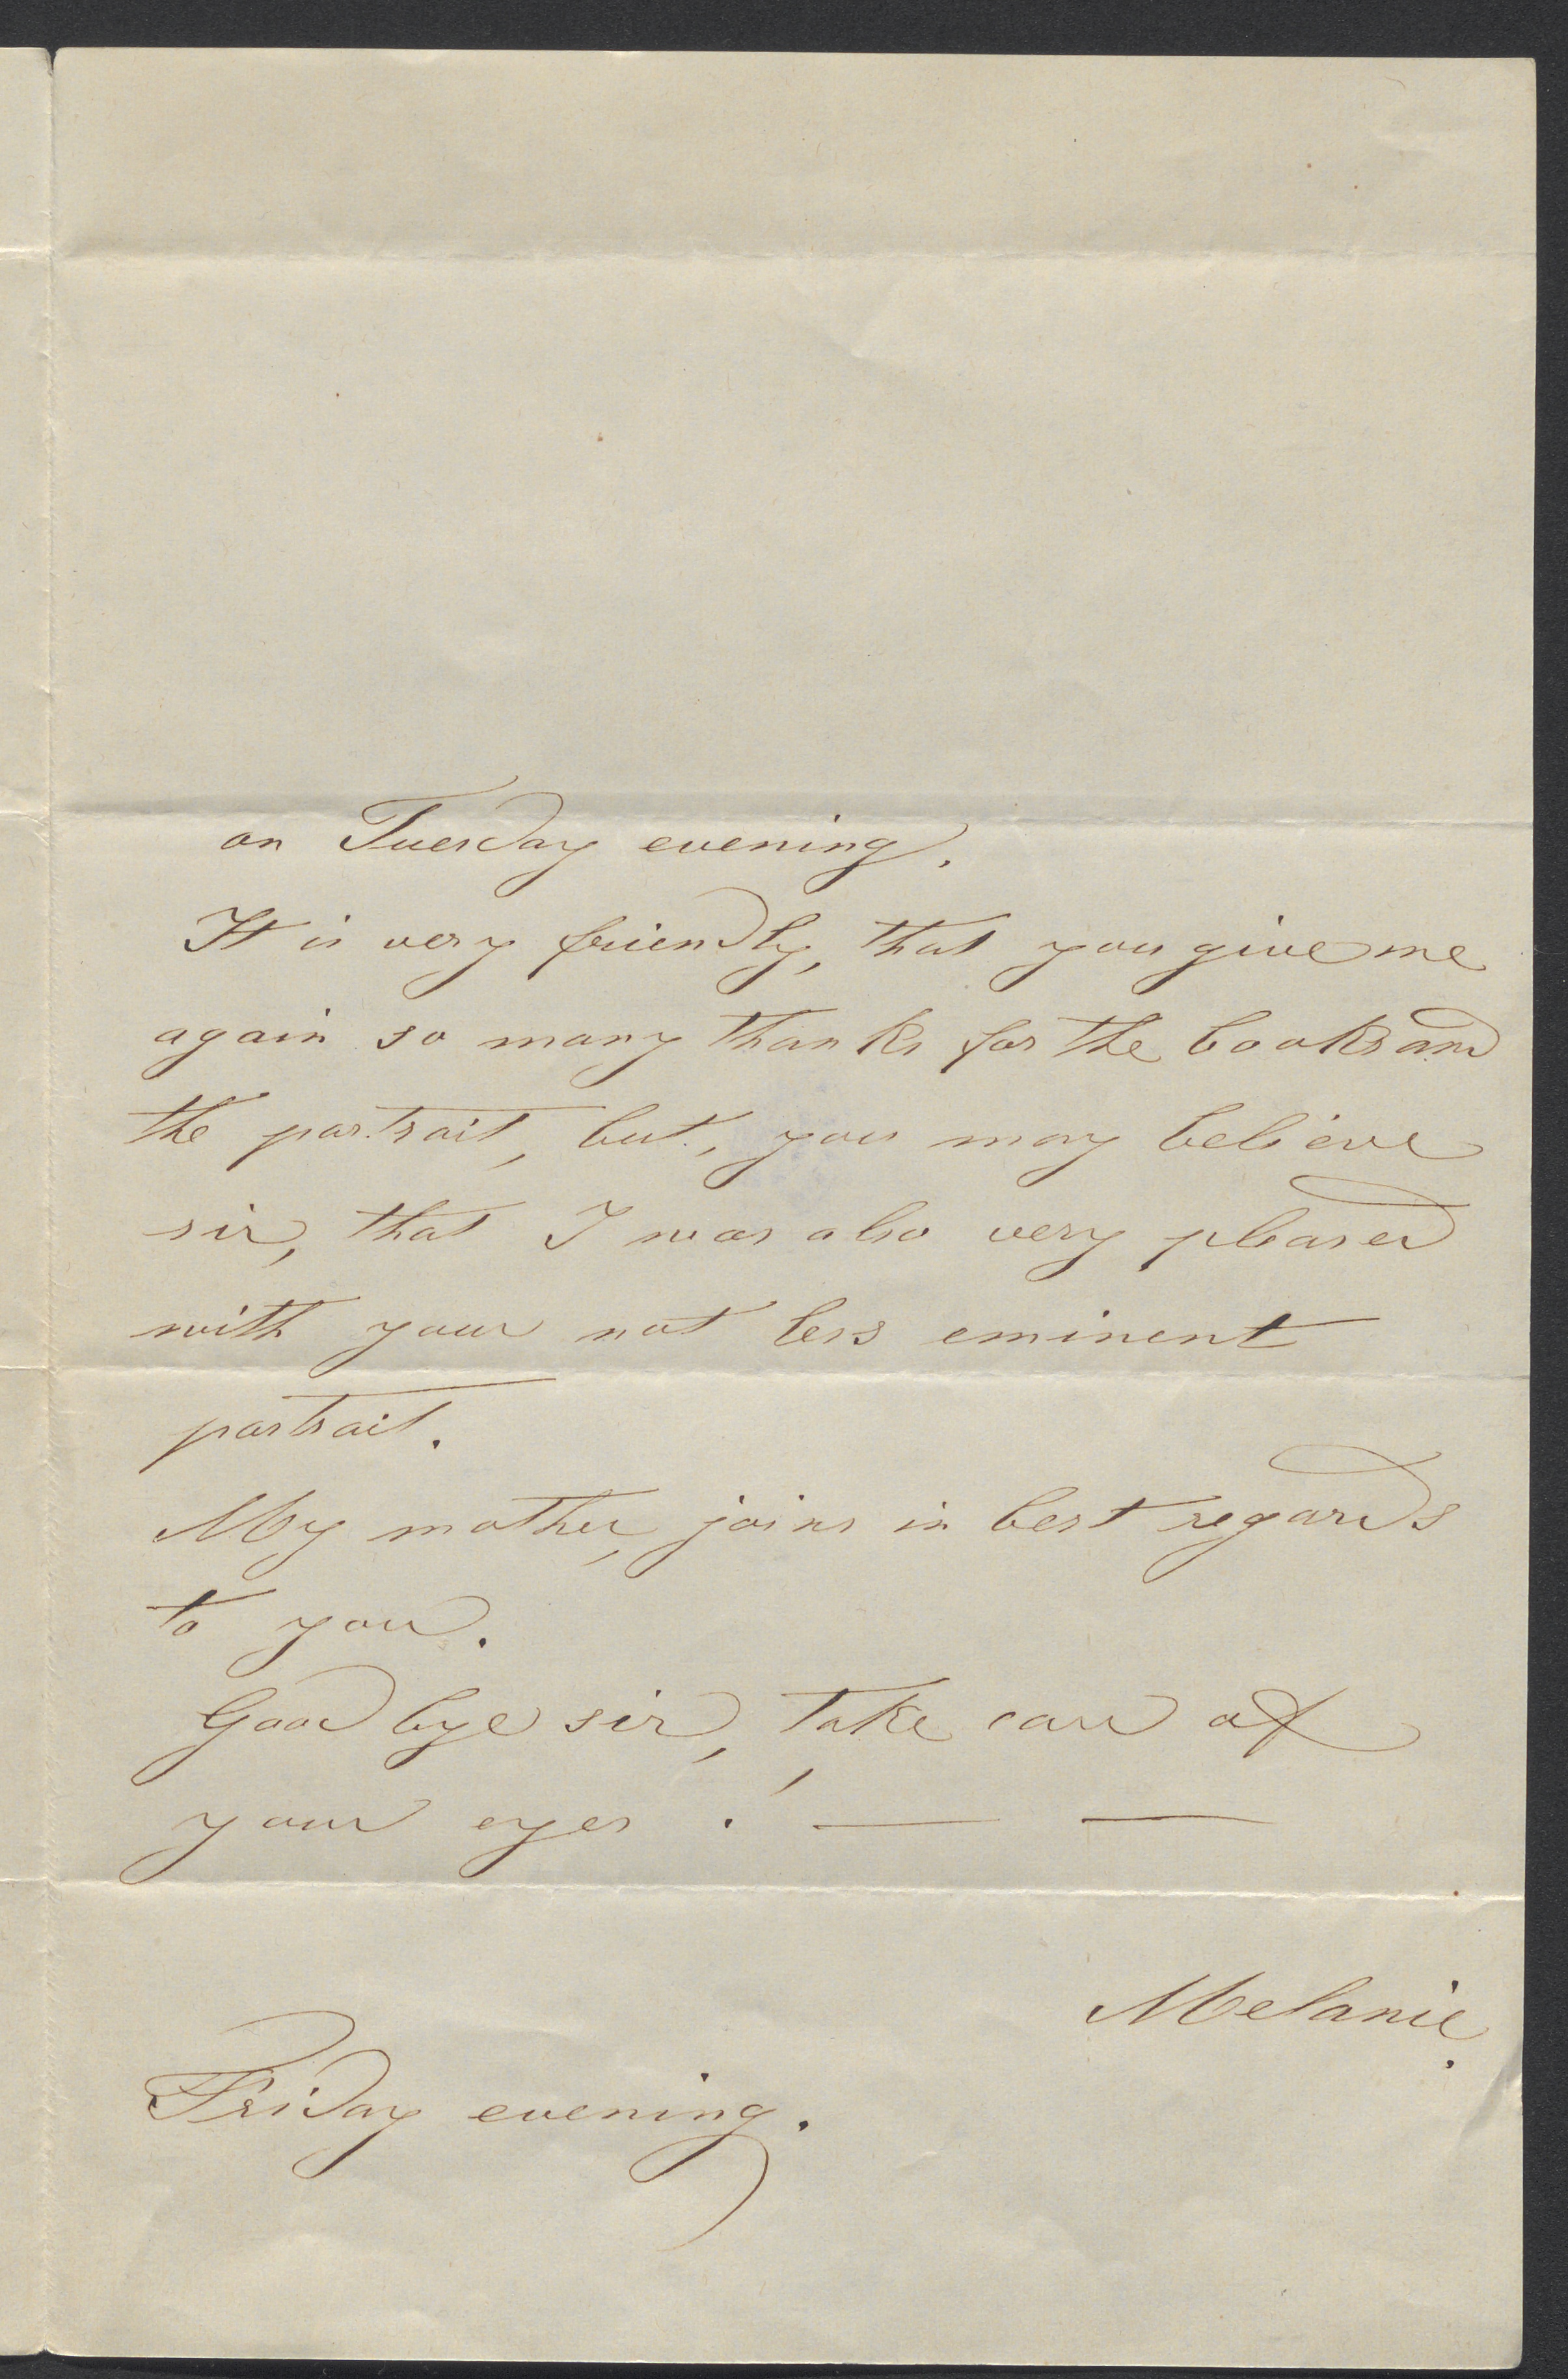 on Tuesday evening.
It is very friendly, that you give me
again so many thanks for the books and
the portrait, but, you may believe
sir, that I was also very pleased
with your not less eminent
portrait.
My mother, joins in best regards
to you.
Good bye sir, take care of
your eyes! — —
Melanie.
Friday evening.